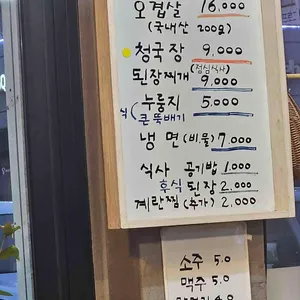 오겹살 16,000
(국내산 200g)
청국장 9,000
(점심식사)
된장찌개 9,000
식 누룽지 5,000
큰뚝배기
냉면 (비.물) 7,000
식사 공기밥 1,000
후식 된장 2,000
계란찜 (추가) 2,000
소주 5.0
맥주 5.0